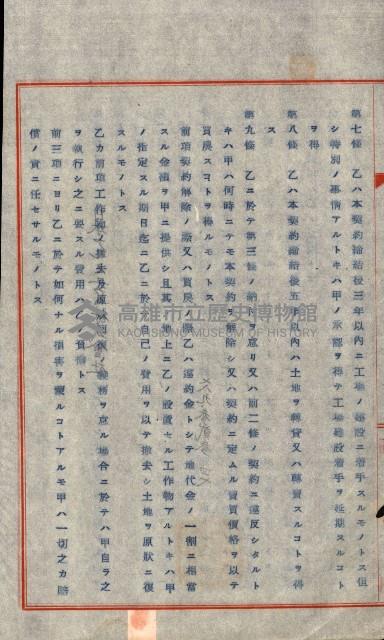 第七條　乙ハ本契約締結後三年以內ニ工場ノ建設ニ着手スルモノトス但
シ特別ノ事情アルトキハ甲ノ承認ヲ得テ工場建設着手ヲ延期スルコト
ヲ得
第八條　乙ハ本契約締結後五年以內ハ土地ヲ轉貸又ハ轉賣スルコトヲ得
ス
第九條　乙ニ於テ第三條ノ給付ヲ怠リ又ハ前二條ノ契約ニ違反シタルト
キハ甲ハ何時ニテモ本契約ヲ解除シ又ハ契約ニ定ムル賣買價格ヲ以テ
買戾スコトヲ得ルモノトス
前項契約解除ノ際又ハ買戾ノ際乙ハ違約金トシテ地代金ノ一割ニ相當
スル金額ヲ甲ニ提供シ且其ノ地上ニ乙ノ設置セル工作物アルトキハ甲
ノ指定スル期日迄ニ乙ニ於テ自己ノ費用ヲ以テ撤去シ土地ヲ原狀ニ復
スルモノトス
乙カ前項工作物ノ撤去及原狀回復ノ義務ヲ怠ル場合ニ於テハ甲自ラ之
ヲ執行シ之ニ要スル費用ハ乙ノ負擔トス
前三項ニヨリ乙ニ於テ如何ナル損害ヲ蒙ルコトアルモ甲ハ一切之カ賠
償ノ責ニ任セサルモノトス
高雄市立歷史博物館
KAOHSIUNG MUSEUM OF HISTORY